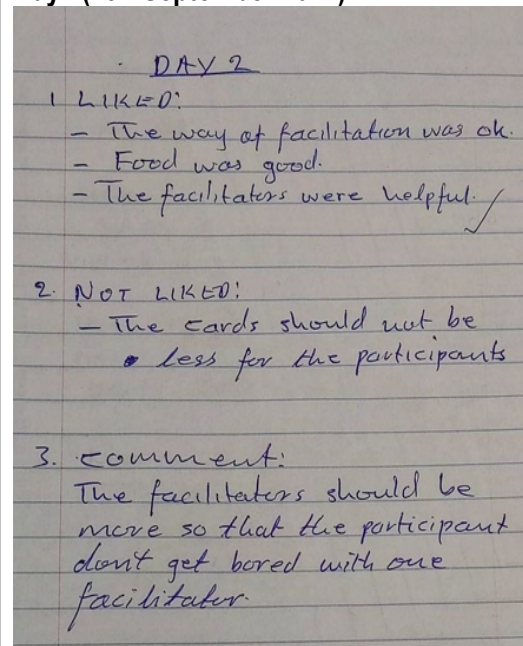 DAY 2
1 LIKED:
- The way of facilitation was ok.
- Food was good.
- The facilitators were helpful.
2. NOT LIKED:
- The cards should not be
less for the participants
3. comment:
The facilitaters should be
more so that the participant
don't get bored with one
facilitator.